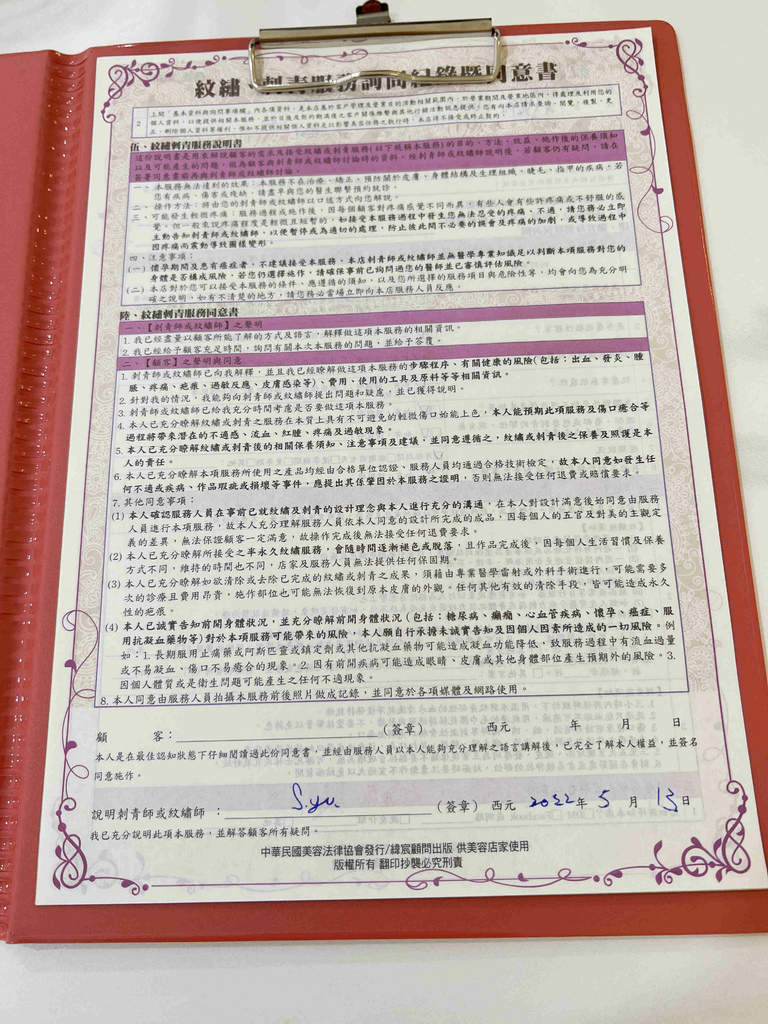 紋繡、刺青服務詢問紀錄暨同意書
2 上開「基本資料與詢問事項欄」內各項資料，是本店基於客戶管理及營業目的活動相關範圍內，於營業期間及營業地區內，得處理及利用您的
個人資料，以便提供相關本服務，並於日後及契約期滿後之客戶關係聯繫與其他行銷活動訊息提供。您有向本店請求查詢、閱覽、複製、更
正、刪除個人資料等權利。惟如不提供相關個人資料之以影響美容任務之執行時，本店得不接受或終止契約。
伍、紋繡刺青服務說明書
這份說明書是用來解說顧客的需求及接受紋繡或刺青服務(以下統稱本服務)的目的、方法、效益、施作後的保養須知
以及可能產生的問題，做為顧客與刺青師或紋繡師討論時的資料。經刺青師或紋繡師說明後，若顧客仍有疑問，請在
簽署同意書前再與刺青師或紋繡師討論。
一、本服務無法達到的效果：本服務不在治療、矯正、預防關於皮膚、身體結構及生理組織、睫毛、指甲的疾病，若
您有疾病、傷害或殘缺，請盡早與您的醫生聯繫預約就診。
二、操作方法：將由您的刺青師或紋繡師以口述方式向您解說。
三、可能發生輕微疼痛：服務過程或施作後，因每個顧客對疼痛感覺不同而異，有些人會有些許疼痛或不舒服的感
覺。但一般來說疼痛程度是輕微且短暫的。如接受本服務過程中發生您無法忍受的疼痛、不適，請您務必立即
主動告知刺青師或紋繡師，以便暫停或為適切的處理，防止彼此間不必要的誤會及疼痛的加劇，或導致過程中
因疼痛而震動導致圖樣變形。
四、注意事項：
(一) 懷孕期間及患有癌症者，不建議接受本服務，本店刺青師或紋繡師並無醫學專業知識足以判斷本項服務對您的
身體是否構成風險，若您仍選擇施作，請確保事前已詢問過您的醫師並已審慎評估風險。
(二) 本店對於您可以接受本服務的條件、應遵循的須知，以及您所選擇的服務項目與危險性等，均會向您為充分明
確之說明，如有不清楚的地方，請您務必當場立即向本店服務人員反應。
陸、紋繡刺青服務同意書
一、【刺青師或紋繡師】之聲明
1. 我已經盡量以顧客所能了解的方式及語言，解釋做這項本服務的相關資訊。
2. 我已經給予顧客充足時間，詢問有關本次本服務的問題，並給予答覆。
二、【顧客】之聲明與同意
1. 刺青師或紋繡師已向我解釋，並且我已經瞭解做這項本服務的步驟程序、有關健康的風險(包括：出血、發炎、腫
脹、疼痛、疤痕、過敏反應、皮膚感染等)、費用、使用的工具及原料等等相關資訊。
2. 針對我的情況，我能夠向刺青師或紋繡師提出問題和疑慮，並已獲得說明。
3. 刺青師或紋繡師已給我充分時間考慮是否要做這項本服務。
4. 本人已充分瞭解紋繡或刺青之服務在本質上具有不可避免的輕微傷口始能上色，本人能預期此項服務及傷口癒合等
過程將帶來潛在的不適感、流血、紅腫、疼痛及過敏現象。
5. 本人已充分瞭解紋繡或刺青後的相關保養須知、注意事項及建議，並同意遵循之，紋繡或刺青後之保養及照護是本人
的責任。
6. 本人已充分瞭解本項服務所使用之產品均經由合格單位認證、服務人員均通過合格技術檢定，故本人同意如發生任
何不適或疾病、作品瑕疵或損壞等事件，應提出其係肇因於本服務之證明，否則無法接受任何退費或賠償要求。
7. 其他同意事項：
(1) 本人確認服務人員在事前已就紋繡及刺青的設計理念與本人進行充分的溝通，在本人對設計滿意後始同意由服務
人員進行本項服務，故本人充分理解服務人員依本人同意的設計所完成的成品，因每個人的五官及對美的主觀定
義的差異，無法保證顧客一定滿意，故操作完成後無法接受任何退費要求。
(2) 本人已充分瞭解所接受之半永久紋繡服務，會隨時間逐漸褪色或脫落，且作品完成後，因每個人生活習慣及保養
方式不同，維持的時間也不同，店家及服務人員無法提供任何保固期。
(3) 本人已充分瞭解如欲清除或去除已完成的紋繡或刺青之成果，須藉由專業醫學雷射或外科手術進行，可能需要多
次的診療且費用昂貴，施作部位也可能無法恢復到原本皮膚的外觀。任何其他有效的清除手段，皆可能造成永久
性的疤痕。
(4) 本人已誠實告知前開身體狀況，並充分瞭解前開身體狀況(包括：糖尿病、癲癇、心血管疾病、懷孕、癌症、服
用抗凝血藥物等)對於本項服務可能帶來的風險，本人願自行承擔未誠實告知及因個人因素所造成的一切風險。例
如：1. 長期服用止痛藥或阿斯匹靈或鎮定劑或其他抗凝血藥物可能造成凝血功能降低，致服務過程中有流血過量
或不易凝血，傷口不易癒合的現象。2. 因有前開疾病可能造成眼睛、皮膚或其他身體部位產生預期外的風險。3.
因個人體質或是衛生問題可能產生之任何不適現象。
8. 本人同意由服務人員拍攝本服務前後照片做成記錄，並同意於各項媒體及網路使用。
顧 客： (簽章) 西元 年 月 日
本人是在最佳認知狀態下仔細閱讀過此份同意書，並經由服務人員以本人能夠充分理解之語言講解後，已完全了解本人權益，並簽名
同意施作。
說明刺青師或紋繡師： S.yu. (簽章) 西元 2022 年 5 月 13 日
我已充分說明此項本服務，並解答顧客所有疑問。
中華民國美容法律協會發行/緯宸顧問出版 供美容店家使用
版權所有 翻印抄襲必究刑責